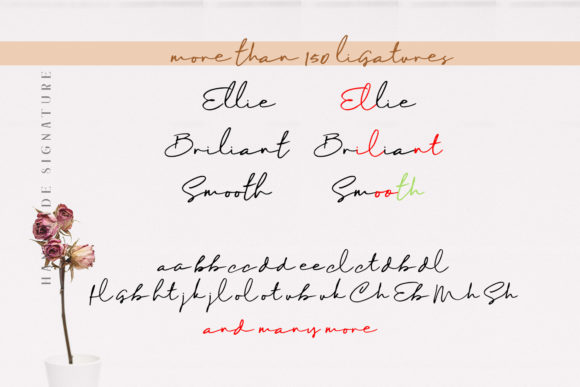 more than 150 ligatures
SIGNATURE
Ellie Ellie
Briliant Briliant
Smooth Smooth
aabbccddeeclctdbdl
flgbhtjkjlolotubukChEbMhSh
and many more